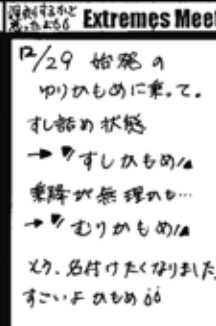 Extremes Mee
12/29 始発の
ゆりかもめに乗って。
すし詰め状態
→ 〃すしかもめ〃
乗降が無理かも…
→ 〃むりかもめ〃
と、名付けたくなりました。
すごいよかもめ